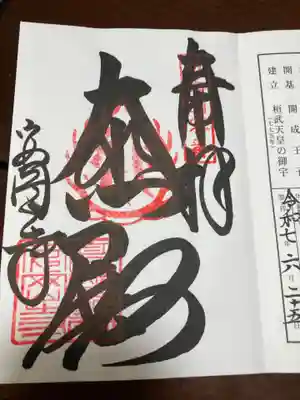 開基 開成王子
建立 桓武天皇の御宇
(七七五年)
令和七年六月二五日
奉拝
大悲殿
安岡寺